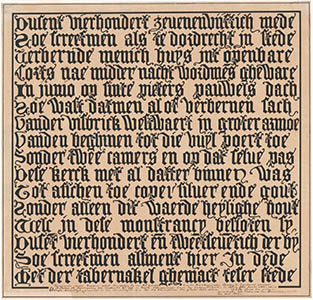 Dusent vierhondert zeuenenvijftich mede
Soe screefmen als te dozdrecht in stede
Verbernde menich huys int openbare
Corts nae midder nacht wordmes gheware
In junio op sinte pieters pauwels dach
Soe was datmen al ofverbernen sach
Vander visbrick West waert in groter armoe
Vanden beghinen tot die vuyl poert toe
Sonder twee camers en op dat selue pas
Dese kerck met al datter binnen was
Tot asschen toe coper siluer ende gout
Sonder alleen dit waerde heylighe hout
Welc in dese monstrancy besloten sy
Dusent vierhondert en tweetseuentich der by
Soe screefmen allment hier In dede
Met der tabernakel ghemaect teser stede